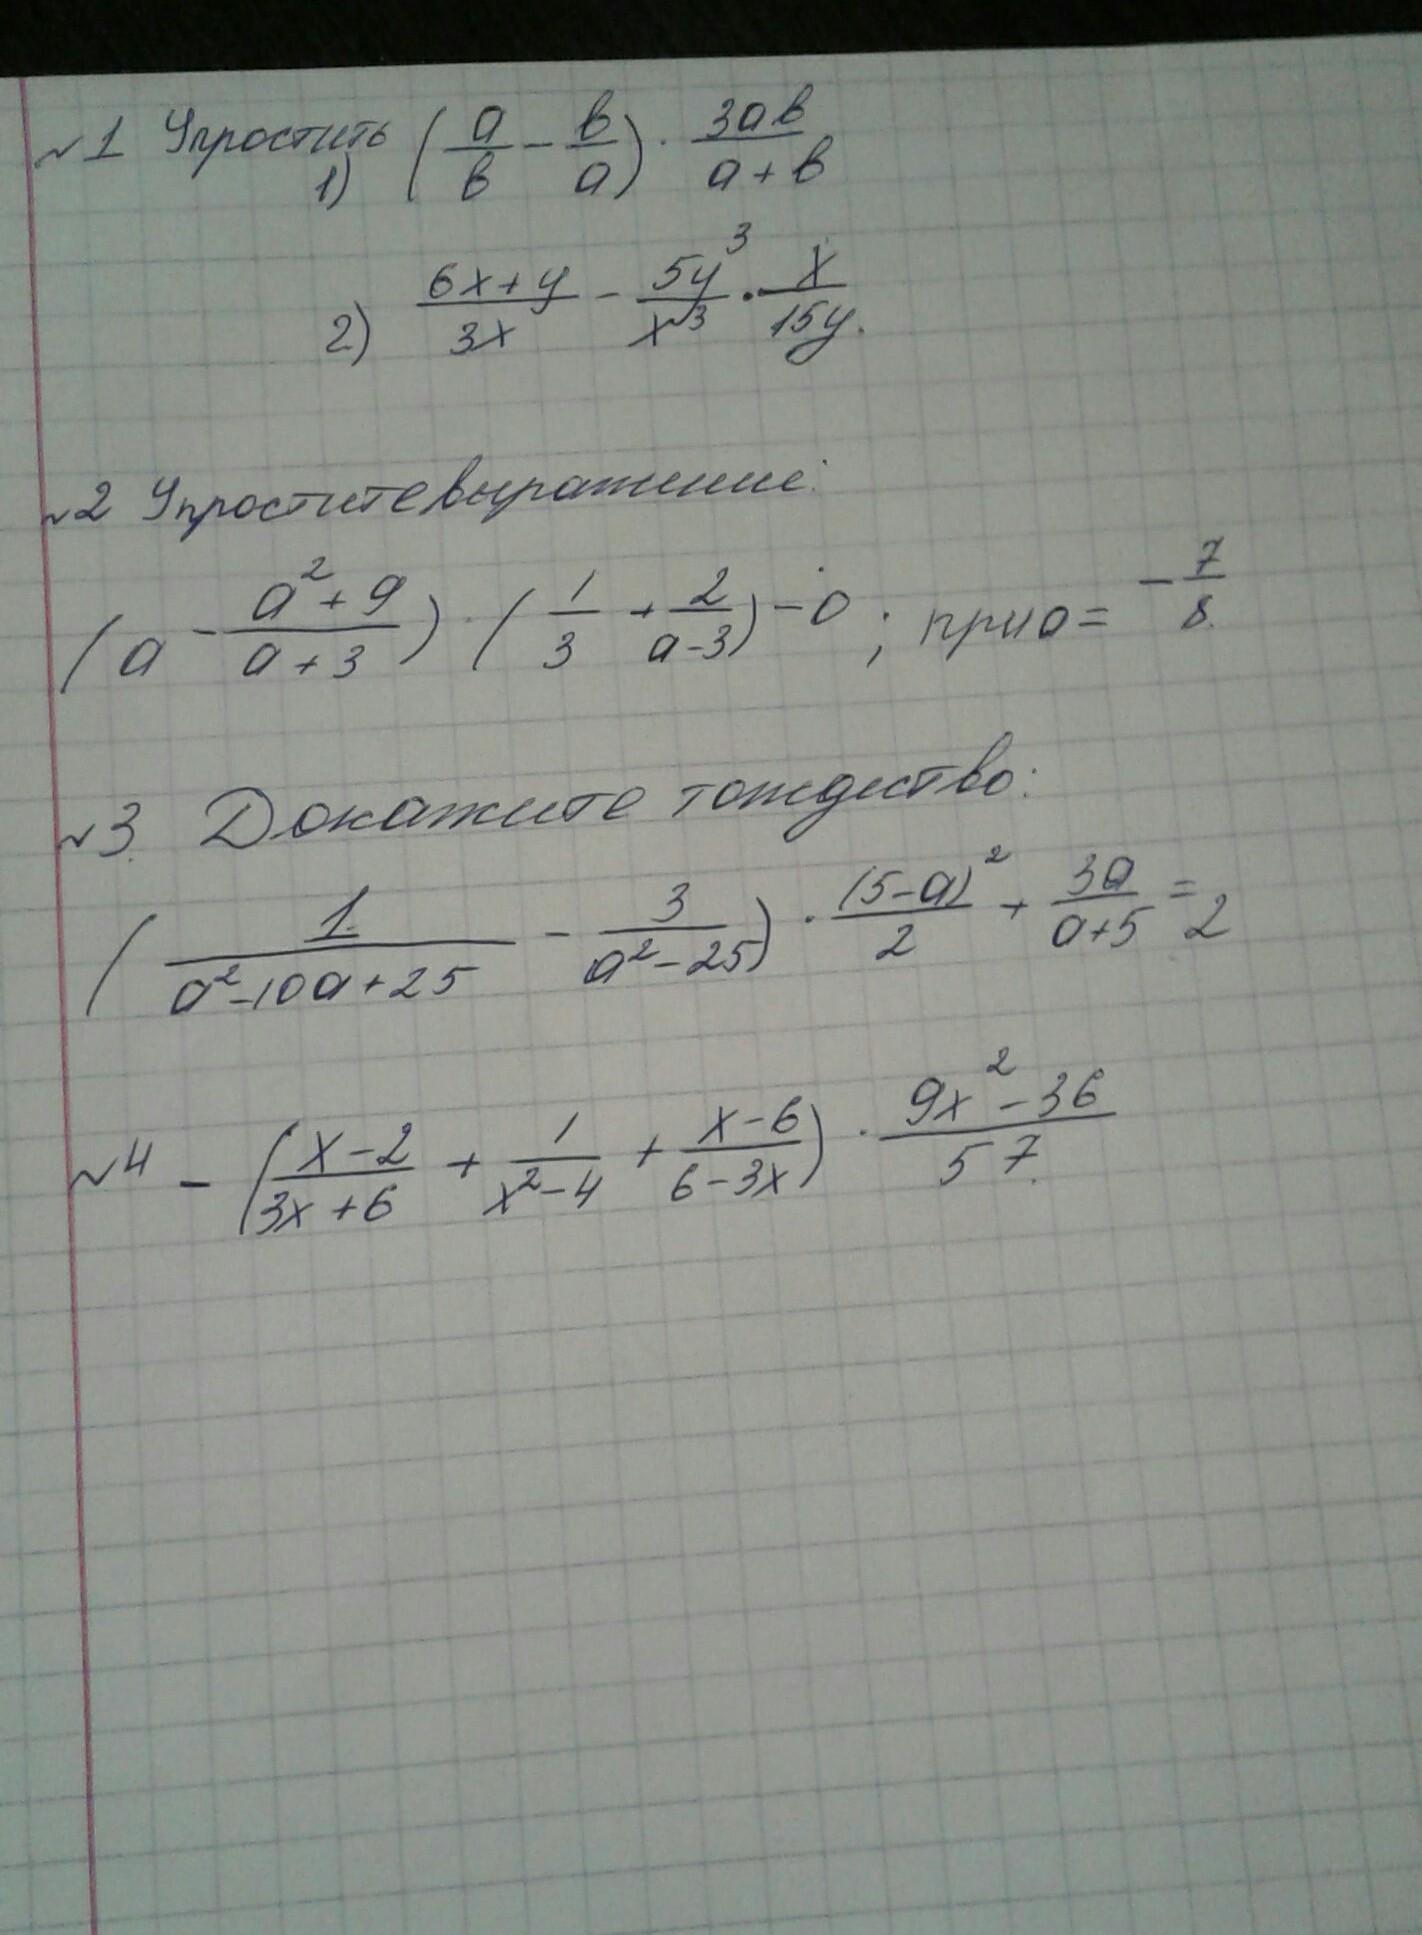 №1 Упростить
1) (a/в - в/a) · 3aв/(a+в)
2) (6x+y)/3x - 5y³/x³ · x/15y.
№2 Упростите выражение:
(a - (a²+9)/(a+3)) · (1/3 + 2/(a-3)) - a ; при a = -7/8.
№3. Докажите тождество:
(1/(a²-10a+25) - 3/(a²-25)) · (5-a)²/2 + 3a/(a+5) = 2
№4 - ((x-2)/(3x+6) + 1/(x²-4) + (x-6)/(6-3x)) · (9x²-36)/57.